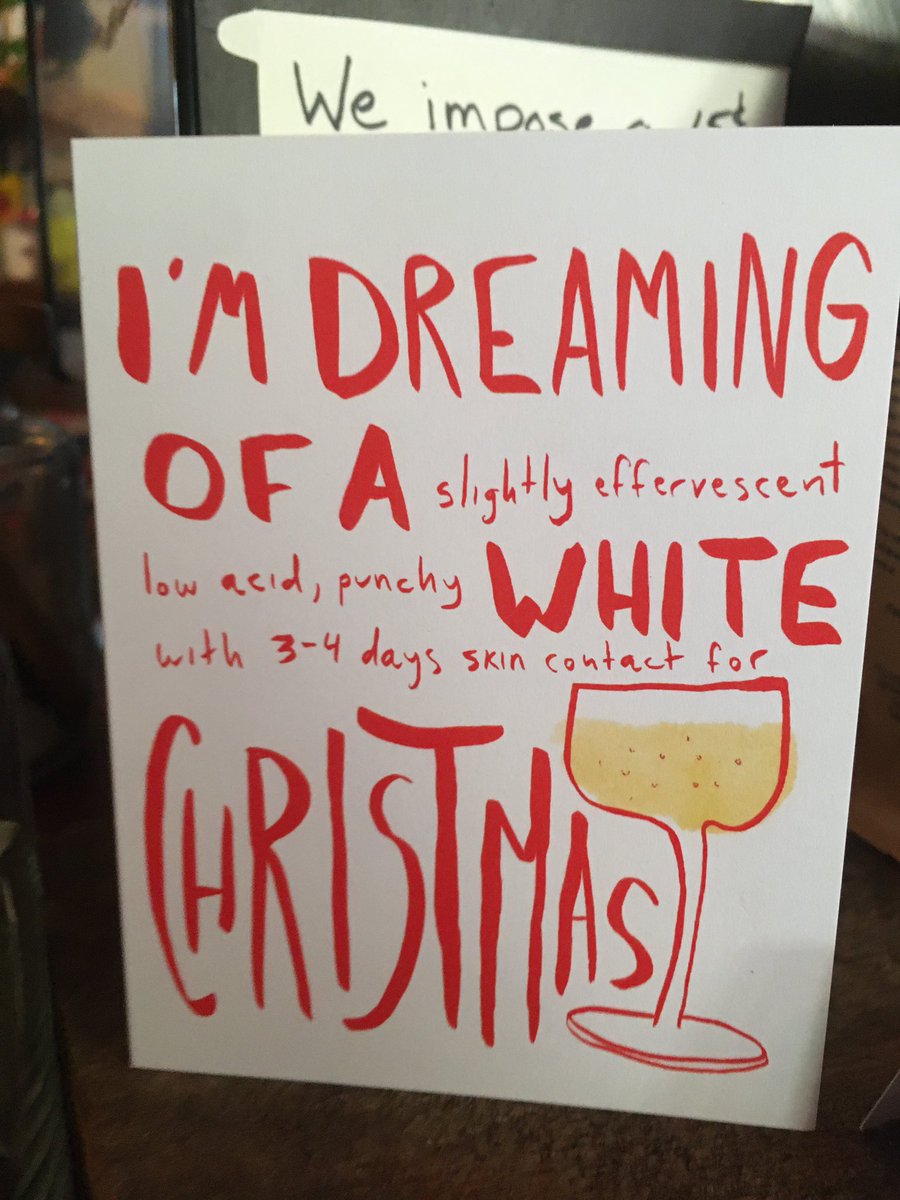 We impose a
I'M DREAMING
OF A slightly effervescent
low acid, punchy WHITE
with 3-4 days skin contact for
CHRISTMAS